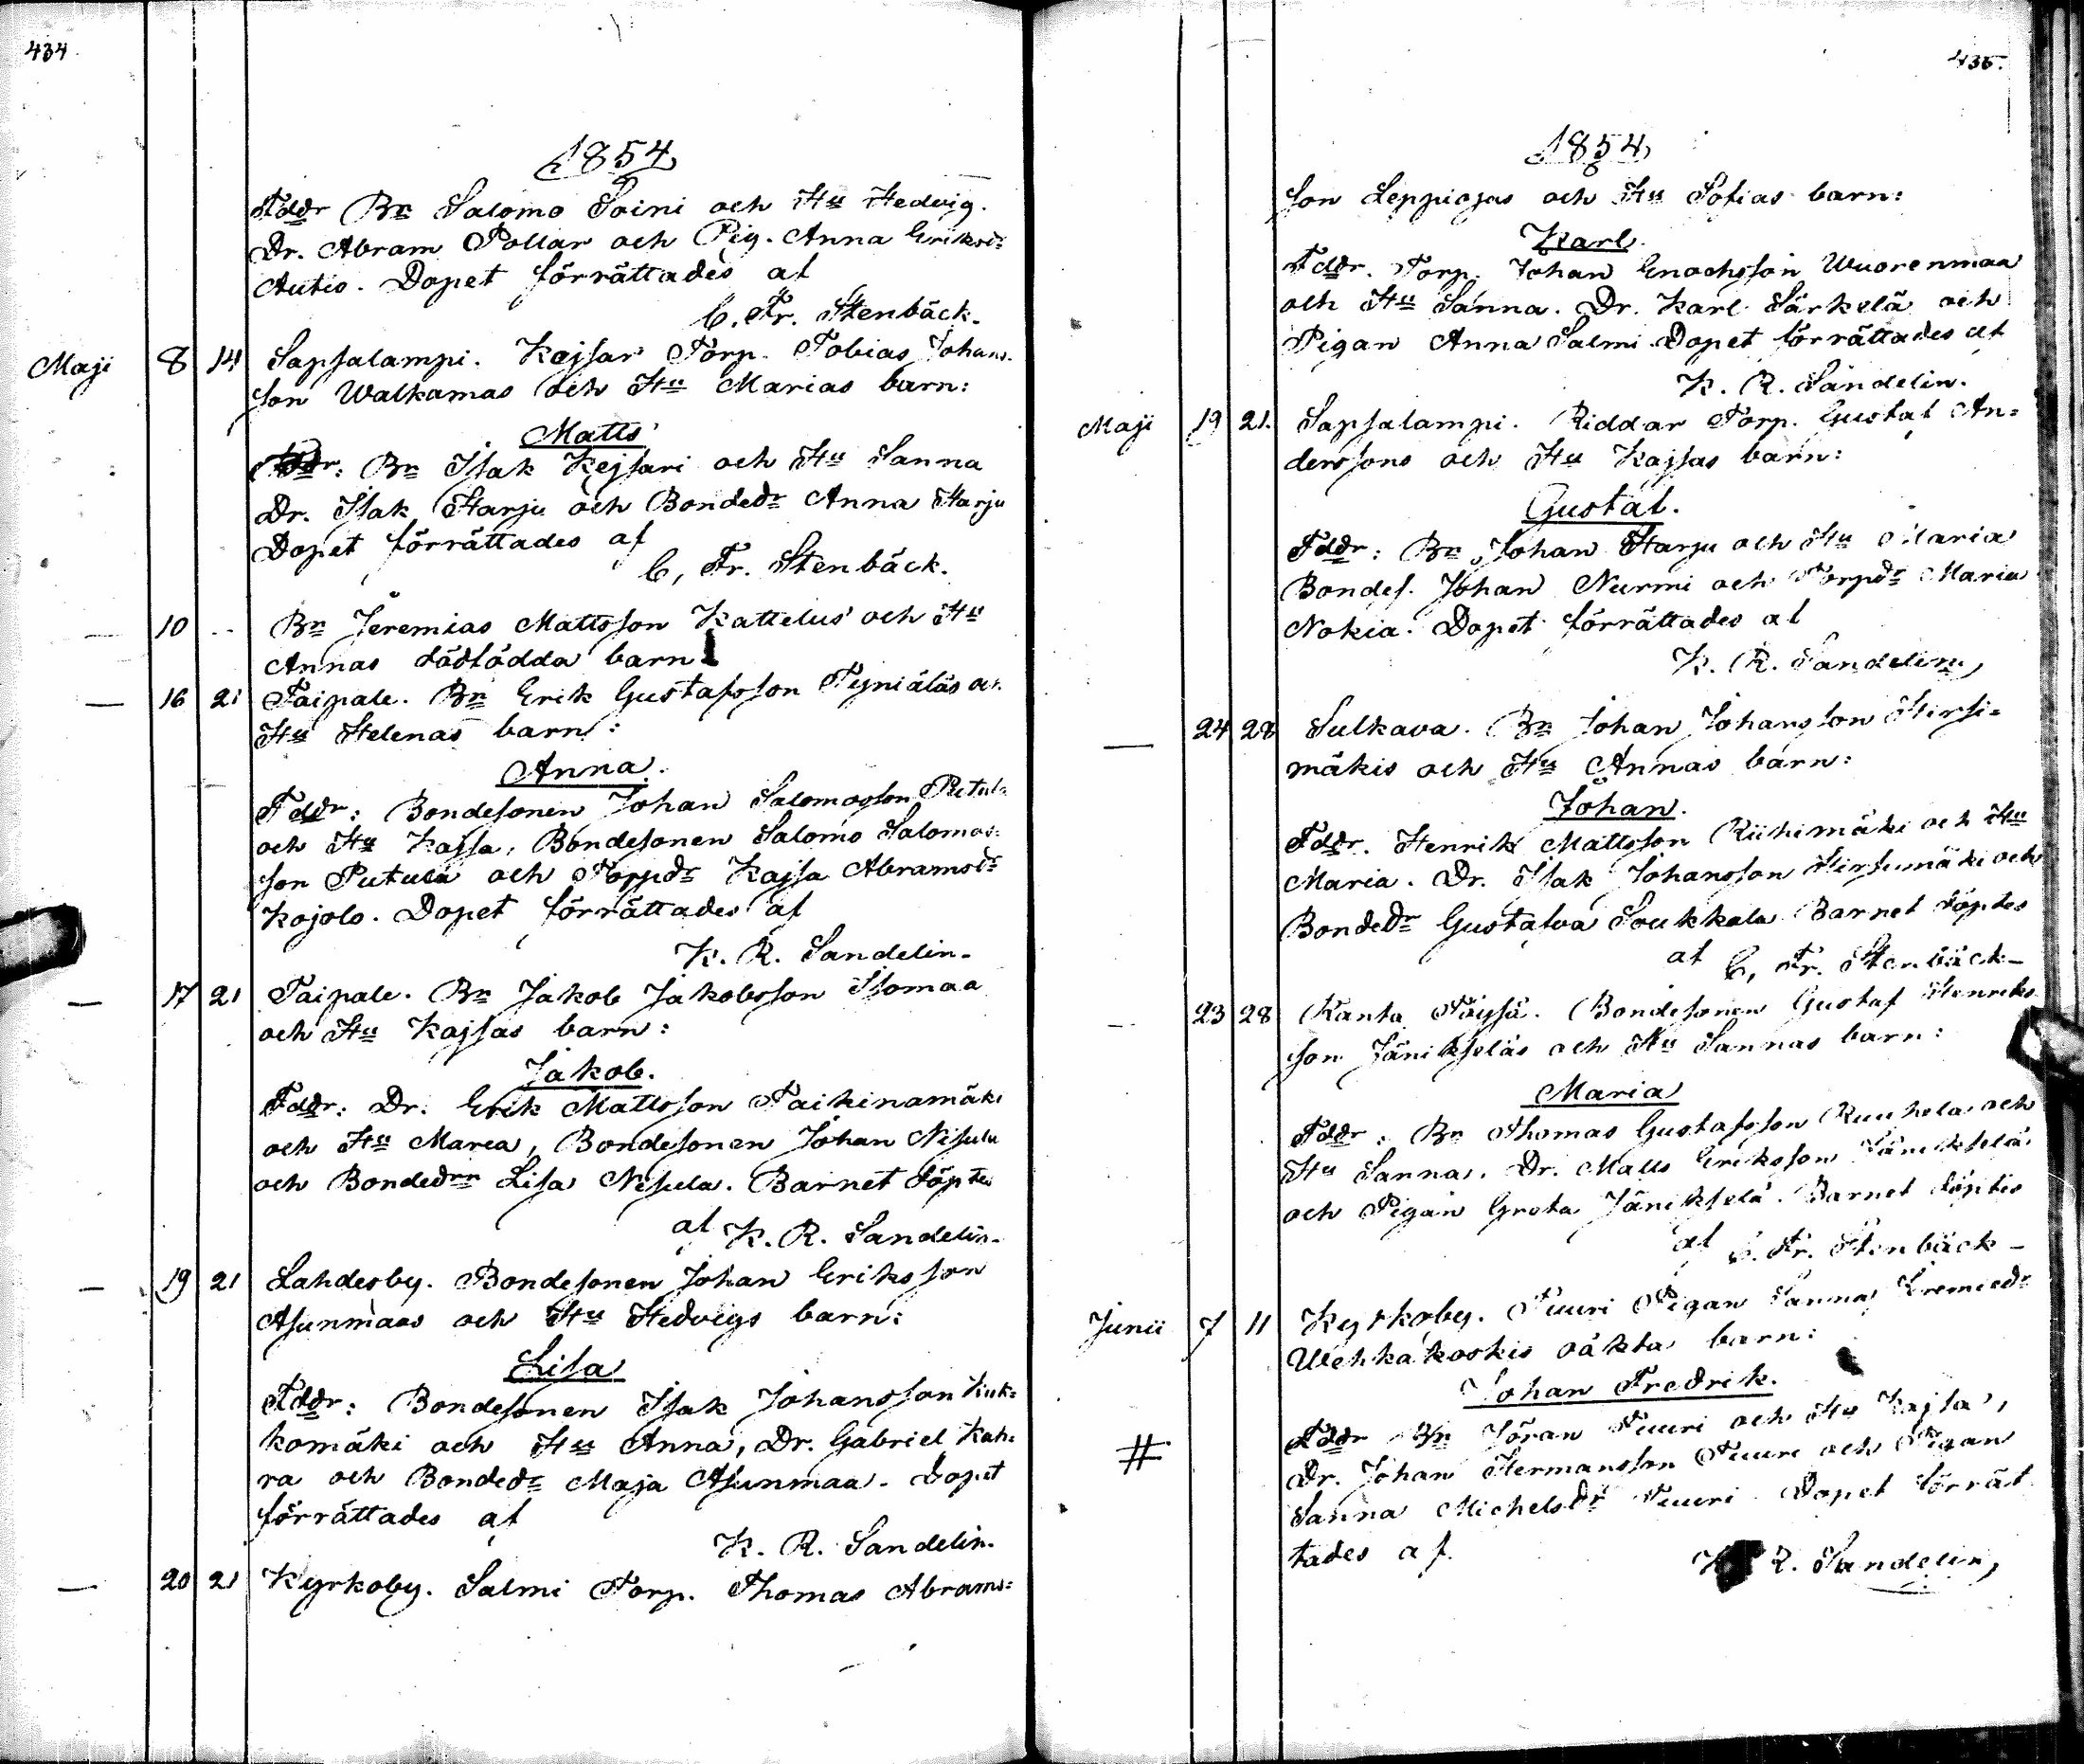 434
1854
Fddr Bn Salomo Soini och Hu Hedvig.
Dr. Abram Pollar och Pig. Anna Eriksdr
Autio. Dopet förrättades af
C. Fr. Stenbäck.
Maji 8 14 Sapsalampi. Kejsar Torp. Tobias Johans-
son Walkamas och Hu Marias barn:
Matts
Fddr: Bn Isak Kejsari och Hu Sanna
Dr. Isak Harju och Bondedr Anna Harju
Dopet förrättades af
C, Fr. Stenbäck.
— 10 .. Bn Jeremias Mattsson Kattelus och Hu
Annas dödfödda barn
— 16 21 Taipale. Bn Erik Gustafsson
Hu Helenas barn:
Anna.
Fddr: Bondesonen Johan Salomosson
och Hu Kajsa, Bondesonen Salomo Salomos-
son Putula och Torpdr Kajsa Abramsdr
Kojolo. Dopet förrättades af
K. R. Sandelin.
— 17 21 Taipale. Bn Jakob Jakobsson Isomaa
och Hu Kajsas barn:
Jakob.
Fddr: Dr. Erik Mattsson Taikinamäki
och Hu Maria, Bondesonen Johan Nisula
och Bondedrn Lisa Nisula. Barnet döptes
af K. R. Sandelin.
— 19 21 Lahdesby. Bondesonen Johan Eriksson
Asunmaas och Hu Hedvigs barn:
Lisa
Fddr: Bondesonen Isak Johansson Kuk-
komäki och Hu Anna, Dr. Gabriel Kah-
ra och Bondedr Maja Asunmaa. Dopet
förrättades af
K. R. Sandelin.
— 20 21 Kyrkoby. Salmi Torp. Thomas Abrams-
435.
1854
son Leppiojas och Hu Sofias barn:
Karl.
Fddr. Torp. Johan Enochsson Wuorenmaa
och Hu Sanna. Dr. Karl Särkelä och
Pigan Anna Salmi Dopet förrättades af
K. R. Sandelin.
Maji 19 21. Sapsalampi. Riddar Torp. Gustaf An-
derssons och Hu Kajsas barn:
Gustaf.
Fddr: Bn Johan Harju och Hu Maria
Bondes. Johan Nurmi och Torpdr Maria
Nokia. Dopet förrättades af
K. R. Sandelin,
— 24 28 Sulkava. Bn Johan Johansson Hirsi-
mäkis och Hu Annas barn:
Johan.
Fddr. Henrik Mattsson Riihimäki och Hu
Maria. Dr. Isak Johansson Hirsimäki och
Bondedr Gustafva Soukkala Barnet döptes
af C, Fr. Stenbäck—
— 23 28 Ranta Töysä. Bondesonen Gustaf Henriks-
son Jänikseläs och Hu Sannas barn:
Maria
Fddr: Bn Thomas Gustafsson Ruuhela och
Hu Sanna. Dr. Matts Eriksson Jänikselä
och Pigan Greta Jänikselä. Barnet döptes
af C. Fr. Stenbäck—
Junii 7 11 Kyrkoby. Tuuri Pigan Sanna Jeremiedr
Wehkakoskis oäkta barn:
Johan Fredrik.
# Fddr Bn Jöran Tuuri och Hu Kajsa,
Dr. Johan Hermansson Tuuri och Pigan
Sanna Michelsdr Tuuri Dopet förrät
tades af.
K. R. Sandelin,